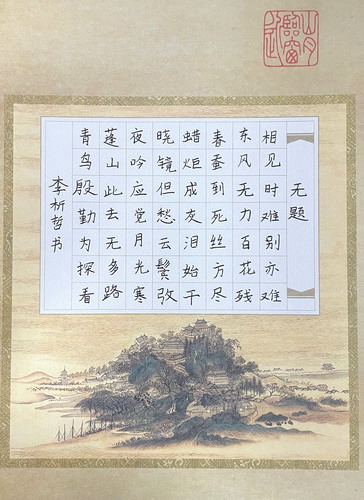 山月臨窗近
无题
相见时难别亦难
东风无力百花残
春蚕到死丝方尽
蜡炬成灰泪始干
晓镜但愁云鬓改
夜吟应觉月光寒
蓬山此去无多路
青鸟殷勤为探看
李析哲书